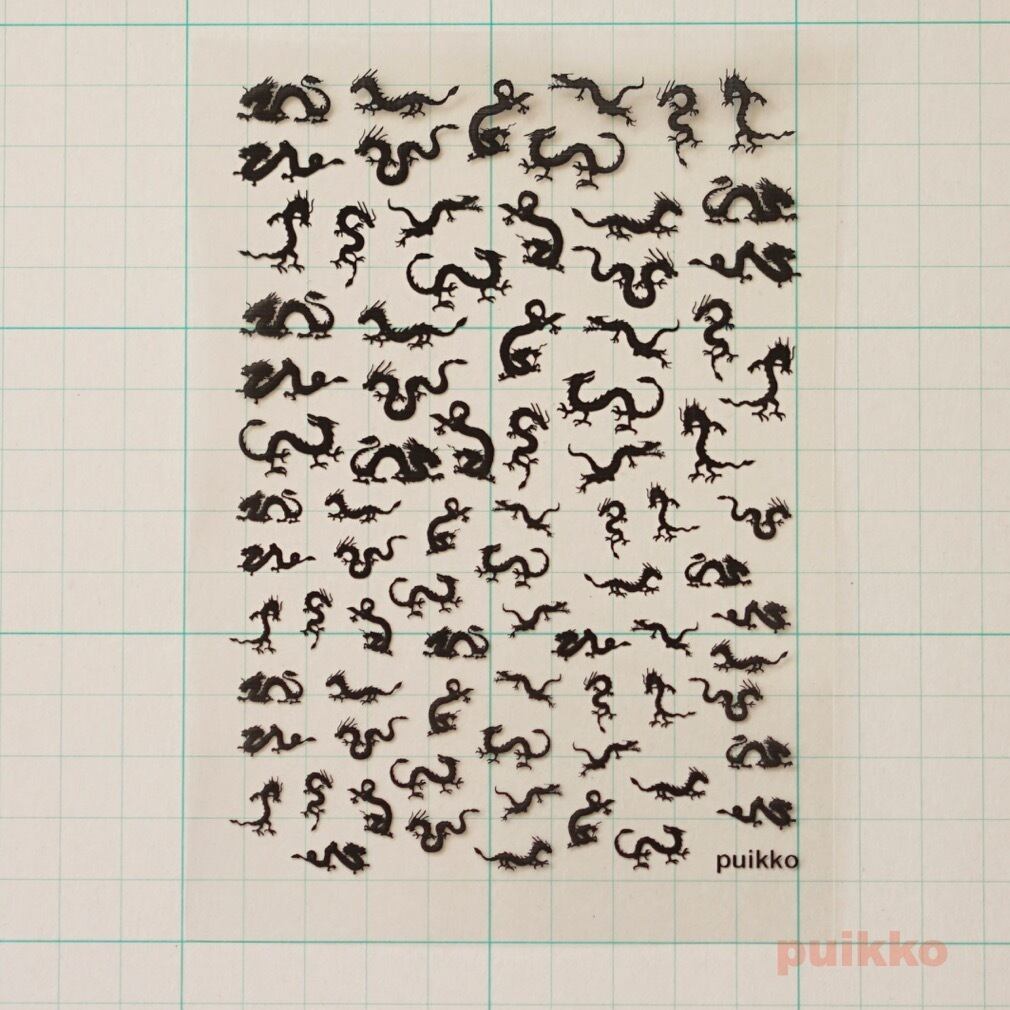 puikko
puikko